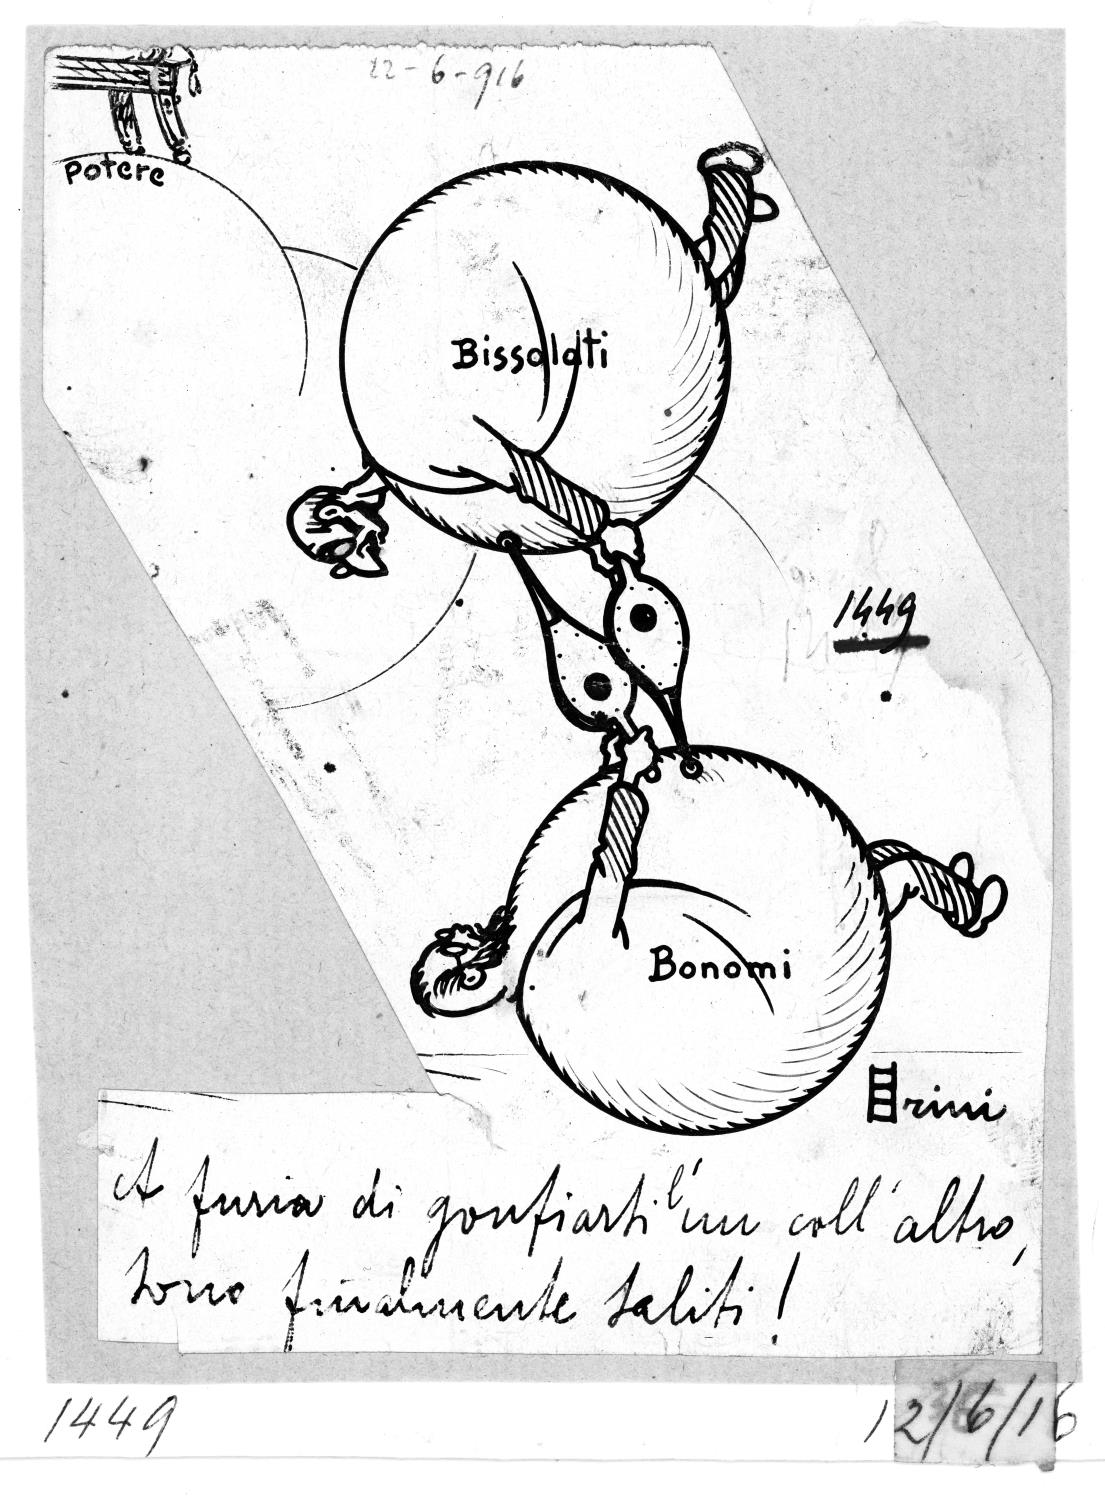 22-6-916
Potere
Bissolati
1449
Bonomi
rini
A furia di gonfiarsi l'un coll'altro,
sono finalmente saliti!
1449
12/6/16